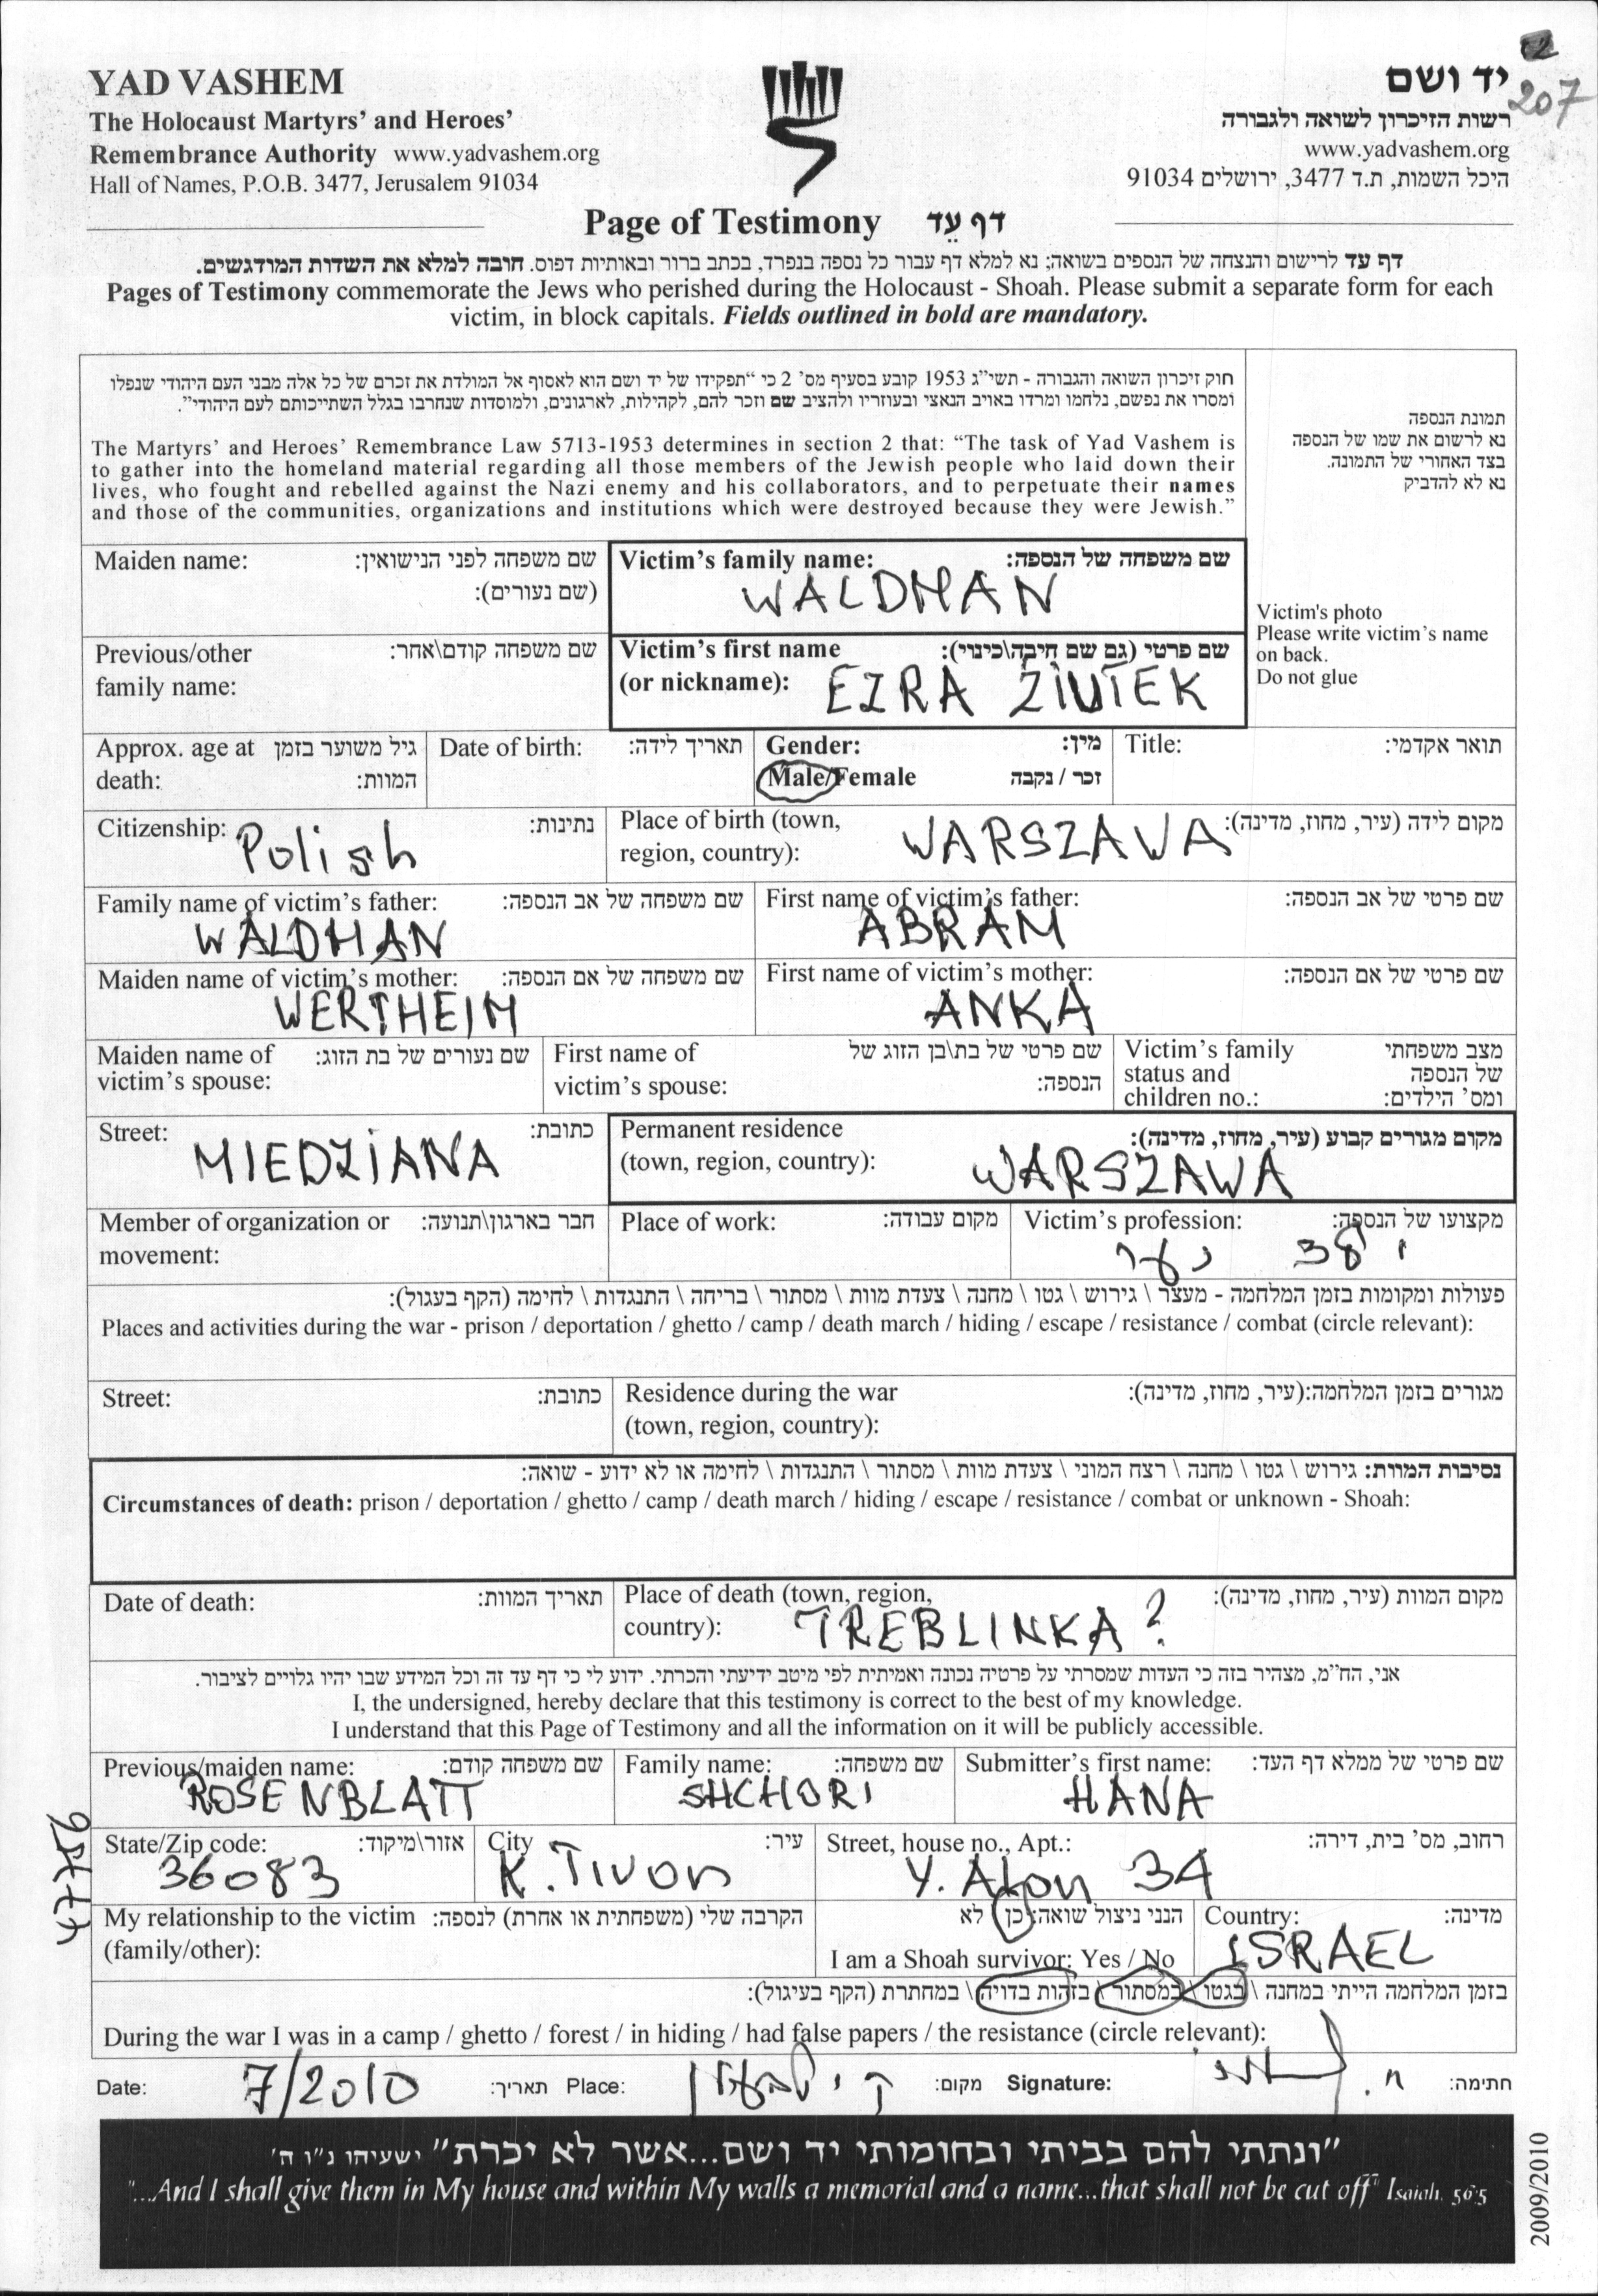 207
YAD VASHEM
The Holocaust Martyrs' and Heroes'
Remembrance Authority www.yadvashem.org
Hall of Names, P.O.B. 3477, Jerusalem 91034
יד ושם
רשות הזיכרון לשואה ולגבורה
www.yadvashem.org
היכל השמות, ת.ד 3477, ירושלים 91034
Page of Testimony דף עֵד
דף עד לרישום והנצחה של הנספים בשואה; נא למלא דף עבור כל נספה בנפרד, בכתב ברור ובאותיות דפוס. חובה למלא את השדות המודגשים.
Pages of Testimony commemorate the Jews who perished during the Holocaust - Shoah. Please submit a separate form for each
victim, in block capitals. Fields outlined in bold are mandatory.
חוק זיכרון השואה והגבורה - תשי"ג 1953 קובע בסעיף מס' 2 כי "תפקידו של יד ושם הוא לאסוף אל המולדת את זכרם של כל אלה מבני העם היהודי שנפלו
ומסרו את נפשם, נלחמו ומרדו באויב הנאצי ובעוזריו ולהציב שם וזכר להם, לקהילות, לארגונים, ולמוסדות שנחרבו בגלל השתייכותם לעם היהודי".
The Martyrs' and Heroes' Remembrance Law 5713-1953 determines in section 2 that: "The task of Yad Vashem is
to gather into the homeland material regarding all those members of the Jewish people who laid down their
lives, who fought and rebelled against the Nazi enemy and his collaborators, and to perpetuate their names
and those of the communities, organizations and institutions which were destroyed because they were Jewish."
תמונת הנספה
נא לרשום את שמו של הנספה
בצד האחורי של התמונה.
נא לא להדביק
Victim's photo
Please write victim's name
on back.
Do not glue
Maiden name: שם משפחה לפני הנישואין:
(שם נעורים):
Victim's family name: שם משפחה של הנספה:
WALDMAN
Previous/other שם משפחה קודם\אחר:
family name:
Victim's first name שם פרטי (גם שם חיבה\כינוי):
(or nickname): EZRA ZIUTEK
Approx. age at גיל משוער בזמן
death: המוות:
Date of birth: תאריך לידה:
Gender: מין:
Male/Female זכר / נקבה
Title: תואר אקדמי:
Citizenship: Polish נתינות:
Place of birth (town, מקום לידה (עיר, מחוז, מדינה):
region, country): WARSZAWA
Family name of victim's father: שם משפחה של אב הנספה:
WALDMAN
First name of victim's father: שם פרטי של אב הנספה:
ABRAM
Maiden name of victim's mother: שם משפחה של אם הנספה:
WERTHEIM
First name of victim's mother: שם פרטי של אם הנספה:
ANKA
Maiden name of שם נעורים של בת הזוג:
victim's spouse:
First name of שם פרטי של בת\בן הזוג של
victim's spouse: הנספה:
Victim's family מצב משפחתי
status and של הנספה
children no.: ומס' הילדים:
Street: כתובת:
MIEDZIANA
Permanent residence מקום מגורים קבוע (עיר, מחוז, מדינה):
(town, region, country): WARSZAWA
Member of organization or חבר בארגון\תנועה:
movement:
Place of work: מקום עבודה:
Victim's profession: מקצועו של הנספה:
נער
Places and activities during the war - prison / deportation / ghetto / camp / death march / hiding / escape / resistance / combat (circle relevant): פעולות ומקומות בזמן המלחמה - מעצר \ גירוש \ גטו \ מחנה \ צעדת מוות \ מסתור \ בריחה \ התנגדות \ לחימה (הקף בעגול):
Street: כתובת:
Residence during the war מגורים בזמן המלחמה:(עיר, מחוז, מדינה):
(town, region, country):
נסיבות המוות: גירוש \ גטו \ מחנה \ רצח המוני \ צעדת מוות \ מסתור \ התנגדות \ לחימה או לא ידוע - שואה:
Circumstances of death: prison / deportation / ghetto / camp / death march / hiding / escape / resistance / combat or unknown - Shoah:
Date of death: תאריך המוות:
Place of death (town, region, מקום המוות (עיר, מחוז, מדינה):
country): TREBLINKA ?
אני, הח"מ, מצהיר בזה כי העדות שמסרתי על פרטיה נכונה ואמיתית לפי מיטב ידיעתי והכרתי. ידוע לי כי דף עד זה וכל המידע שבו יהיו גלויים לציבור.
I, the undersigned, hereby declare that this testimony is correct to the best of my knowledge.
I understand that this Page of Testimony and all the information on it will be publicly accessible.
Previous/maiden name: שם משפחה קודם:
ROSENBLATT
Family name: שם משפחה:
SHCHORI
Submitter's first name: שם פרטי של ממלא דף העד:
HANA
State/Zip code: אזור\מיקוד:
36083
City עיר:
K. Tivon
Street, house no., Apt.: רחוב, מס' בית, דירה:
Y. Alon 34
My relationship to the victim הקרבה שלי (משפחתית או אחרת) לנספה:
(family/other):
הנני ניצול שואה: כן \ לא
I am a Shoah survivor: Yes / No
Country: מדינה:
ISRAEL
בזמן המלחמה הייתי במחנה \ בגטו \ במסתור \ בזהות בדויה \ במחתרת (הקף בעיגול):
During the war I was in a camp / ghetto / forest / in hiding / had false papers / the resistance (circle relevant):
Date: 7/2010 תאריך: Place: ק. טבעון מקום: Signature: חתימה:
"ונתתי להם בביתי ובחומותי יד ושם...אשר לא יכרת" ישעיהו נ"ו ה'
"...And I shall give them in My house and within My walls a memorial and a name...that shall not be cut off" Isaiah, 56:5
2009/2010